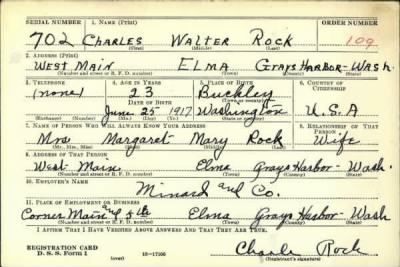 SERIAL NUMBER 1. NAME (Print) ORDER NUMBER
702 CHARLES WALTER ROCK 109
(First) (Middle) (Last)
2. ADDRESS (Print)
WEST MAIN ELMA GRAYS HARBOR - WASH.
(Number and street or R. F. D. number) (Town) (County) (State)
3. TELEPHONE 4. AGE IN YEARS 5. PLACE OF BIRTH 6. COUNTRY OF CITIZENSHIP
(none) 23 Buckley
DATE OF BIRTH (Town or county)
June 25 1917 Washington U.S.A
(Exchange) (No.) (Mo.) (Day) (Yr.) (State or country)
7. NAME OF PERSON WHO WILL ALWAYS KNOW YOUR ADDRESS 8. RELATIONSHIP OF THAT PERSON
Mrs Margaret Mary Rock Wife
(Mr., Mrs., Miss) (First) (Middle) (Last)
9. ADDRESS OF THAT PERSON
West Main Elma Grays Harbor - Wash.
(Number and street or R. F. D. number) (Town) (County) (State)
10. EMPLOYER'S NAME
Minard and Co.
11. PLACE OF EMPLOYMENT OR BUSINESS
Corner Main and 4th Elma Grays Harbor - Wash
(Number and street or R. F. D. number) (Town) (County) (State)
I AFFIRM THAT I HAVE VERIFIED ABOVE ANSWERS AND THAT THEY ARE TRUE.
REGISTRATION CARD
D. S. S. Form 1 16-17105 Charles Rock
(over) (Registrant's signature)